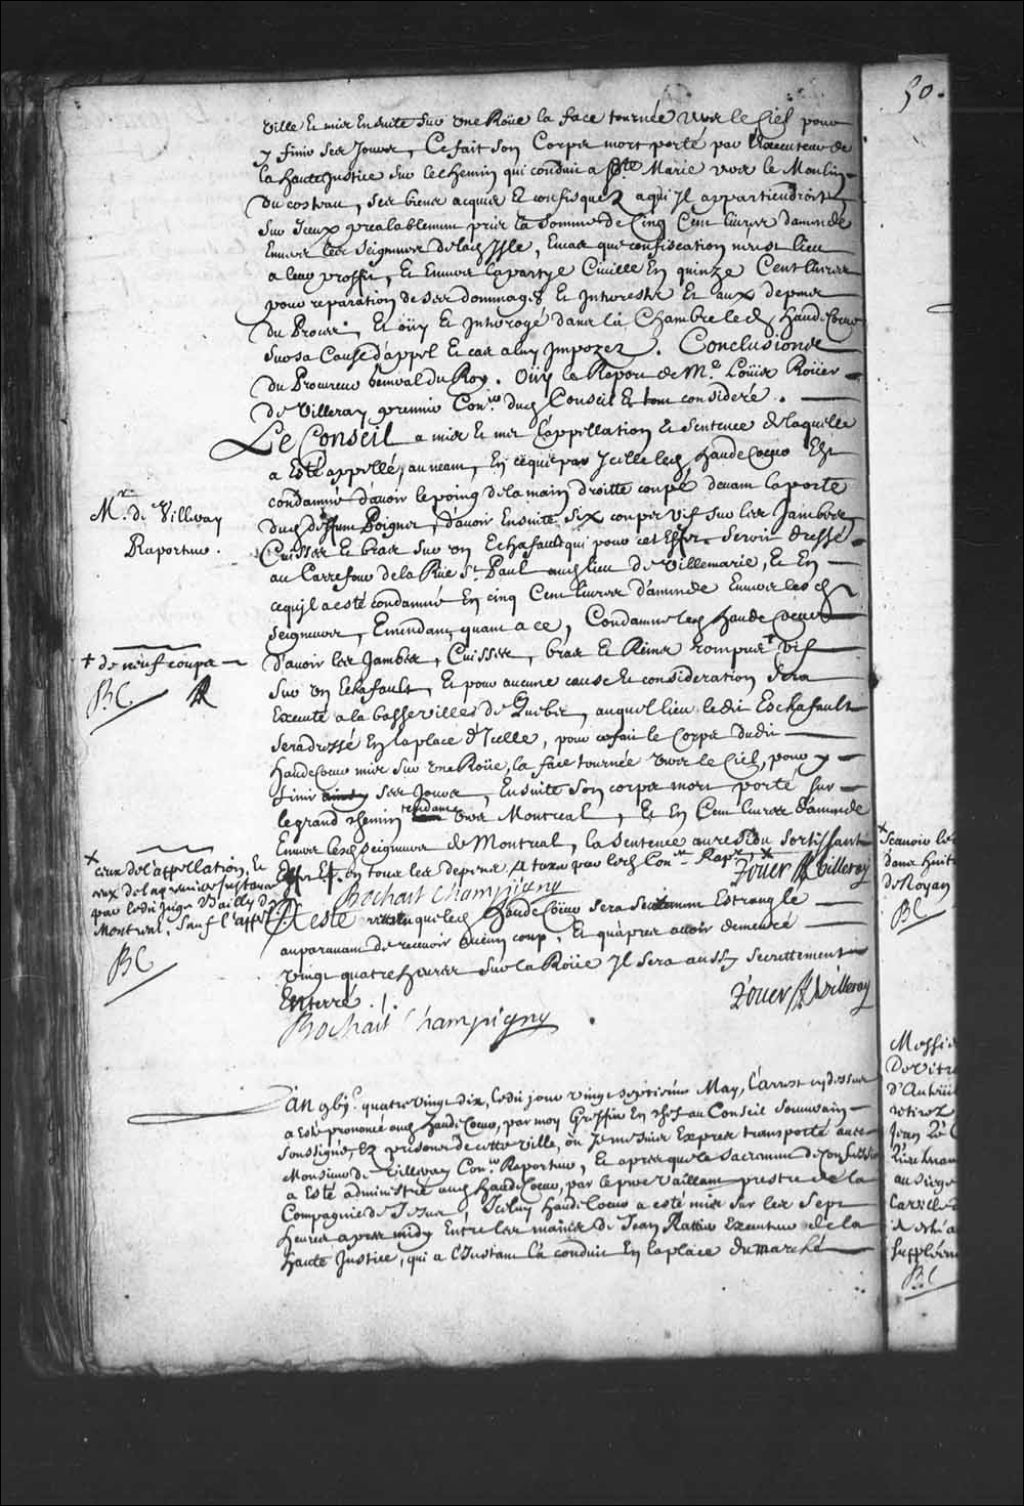 50.
ville et mis Ensuite sur une Roüe la face tournée vers le Ciel pour
y finir ses Jours, Ce fait son Corps mort porté par l'Executeur de
la haute Justice sur le chemin qui conduit a Ste Marie vers le Moulin
du costeau, ses biens acquis et confisquez a qui Il appartiendroit,
sur Iceux prealablement pris la somme de Cinq Cent livres damende
Envers les Seigneurs de lad Isle, Encas que confiscation neust lieu
a leur proffit, Et Envers la partye Civille En quinze Cent livres
pour reparation de ses dommages et Interests Et aux depens
du Proces; Et oüy et Interogé dans la Chambre led haudeCoeur
sur sa Cause d'appel et cas a luy Imposez. Conclusions
du Procureur General du Roy. Oüy le Raport de Me Loüis Roüer
de Villeray premier Coner aud Conseil Et tout consideré.
Le Conseil a mis et met l'appellation et sentence de laquelle
a Esté appellé, au neant, En ce que par Icelle led haudeCoeur Est
condamné d'avoir le poing de la main droitte coupé devant la porte
dud deffunt Poignet, d'avoir Ensuite six coups vif sur les Jambes
Cuisses et bras sur un Echafault qui pour cet Effet seroit dressé
au Carrefour de la Rüe St Paul aud lieu de Villemarie, Et En
ce qu'il a esté condamné En cinq Cent livres d'amende Envers lesd
Seigneurs, Emendant quant a ce, Condamne led haudeCoeur
d'avoir les Jambes, Cuisses, bras et Reins rompus + vif
sur un Echafault, Et pour aucune cause et consideration sera
Executé a la basse ville de Quebec, auquel lieu ledit Eschafault
sera dressé En la place d'Icelle, pour ce fait le Corps dudit
haudeCoeur mis sur une Roüe, la face tournée vers le Ciel, pour y
finir ses Jours, Ensuite son corps mort porté sur
le grand chemin tendant vers Montreal, Et En Cent livres d'amende
Envers lesd Seigneurs de Montreal, la Sentence au residu sortissant
Effet Et en tous les depens a taxer par led Coner Rapr x
Bochart Champigny Roüer De Villeray
A esté que led HaudeCoeur sera Estranglé
auparavant de recevoir aucun coup, Et qu'apres avoir demeuré
vingt quatre heures sur la Roüe Il sera aussy secrettement
Enterré.
Roüer De Villeray
Bochart Champigny
L'an gbjc quatre vingt dix, ledit jour vingt septieme May, l'arrest cy dessus
a Esté prononcé aud HaudeCoeur, par moy Greffier En chef au Conseil Souverain
soussigné, Ez prisons de cette ville, ou Je me suis Expres transporté avec
Monsieur de Villeray Coner Raporteur, Et apres que le sacrement de Confession
a Esté administré aud HaudeCoeur, par le pere Vaillant prestre de la
Compagnie de Jesus, Iceluy HaudeCoeur a esté mis sur les Sept
heures apres midy Entre les mains de Jean Rattier Executeur de la
haute Justice, qui a l'Instant l'a conduit En la place du marché
Mr. de Villeray
Raporteur.
+ de neuf coups
BC R
x ceux de l'appellation, Et
ceux de la premiere Instance
par ledit Juge Bailly de
Montreal, sauf
BC
x Scavoir
dans huit
de Royan
BC
Messie
De vitre
d'Auteüil
retirez
Jean
au siege
Supplé
BC